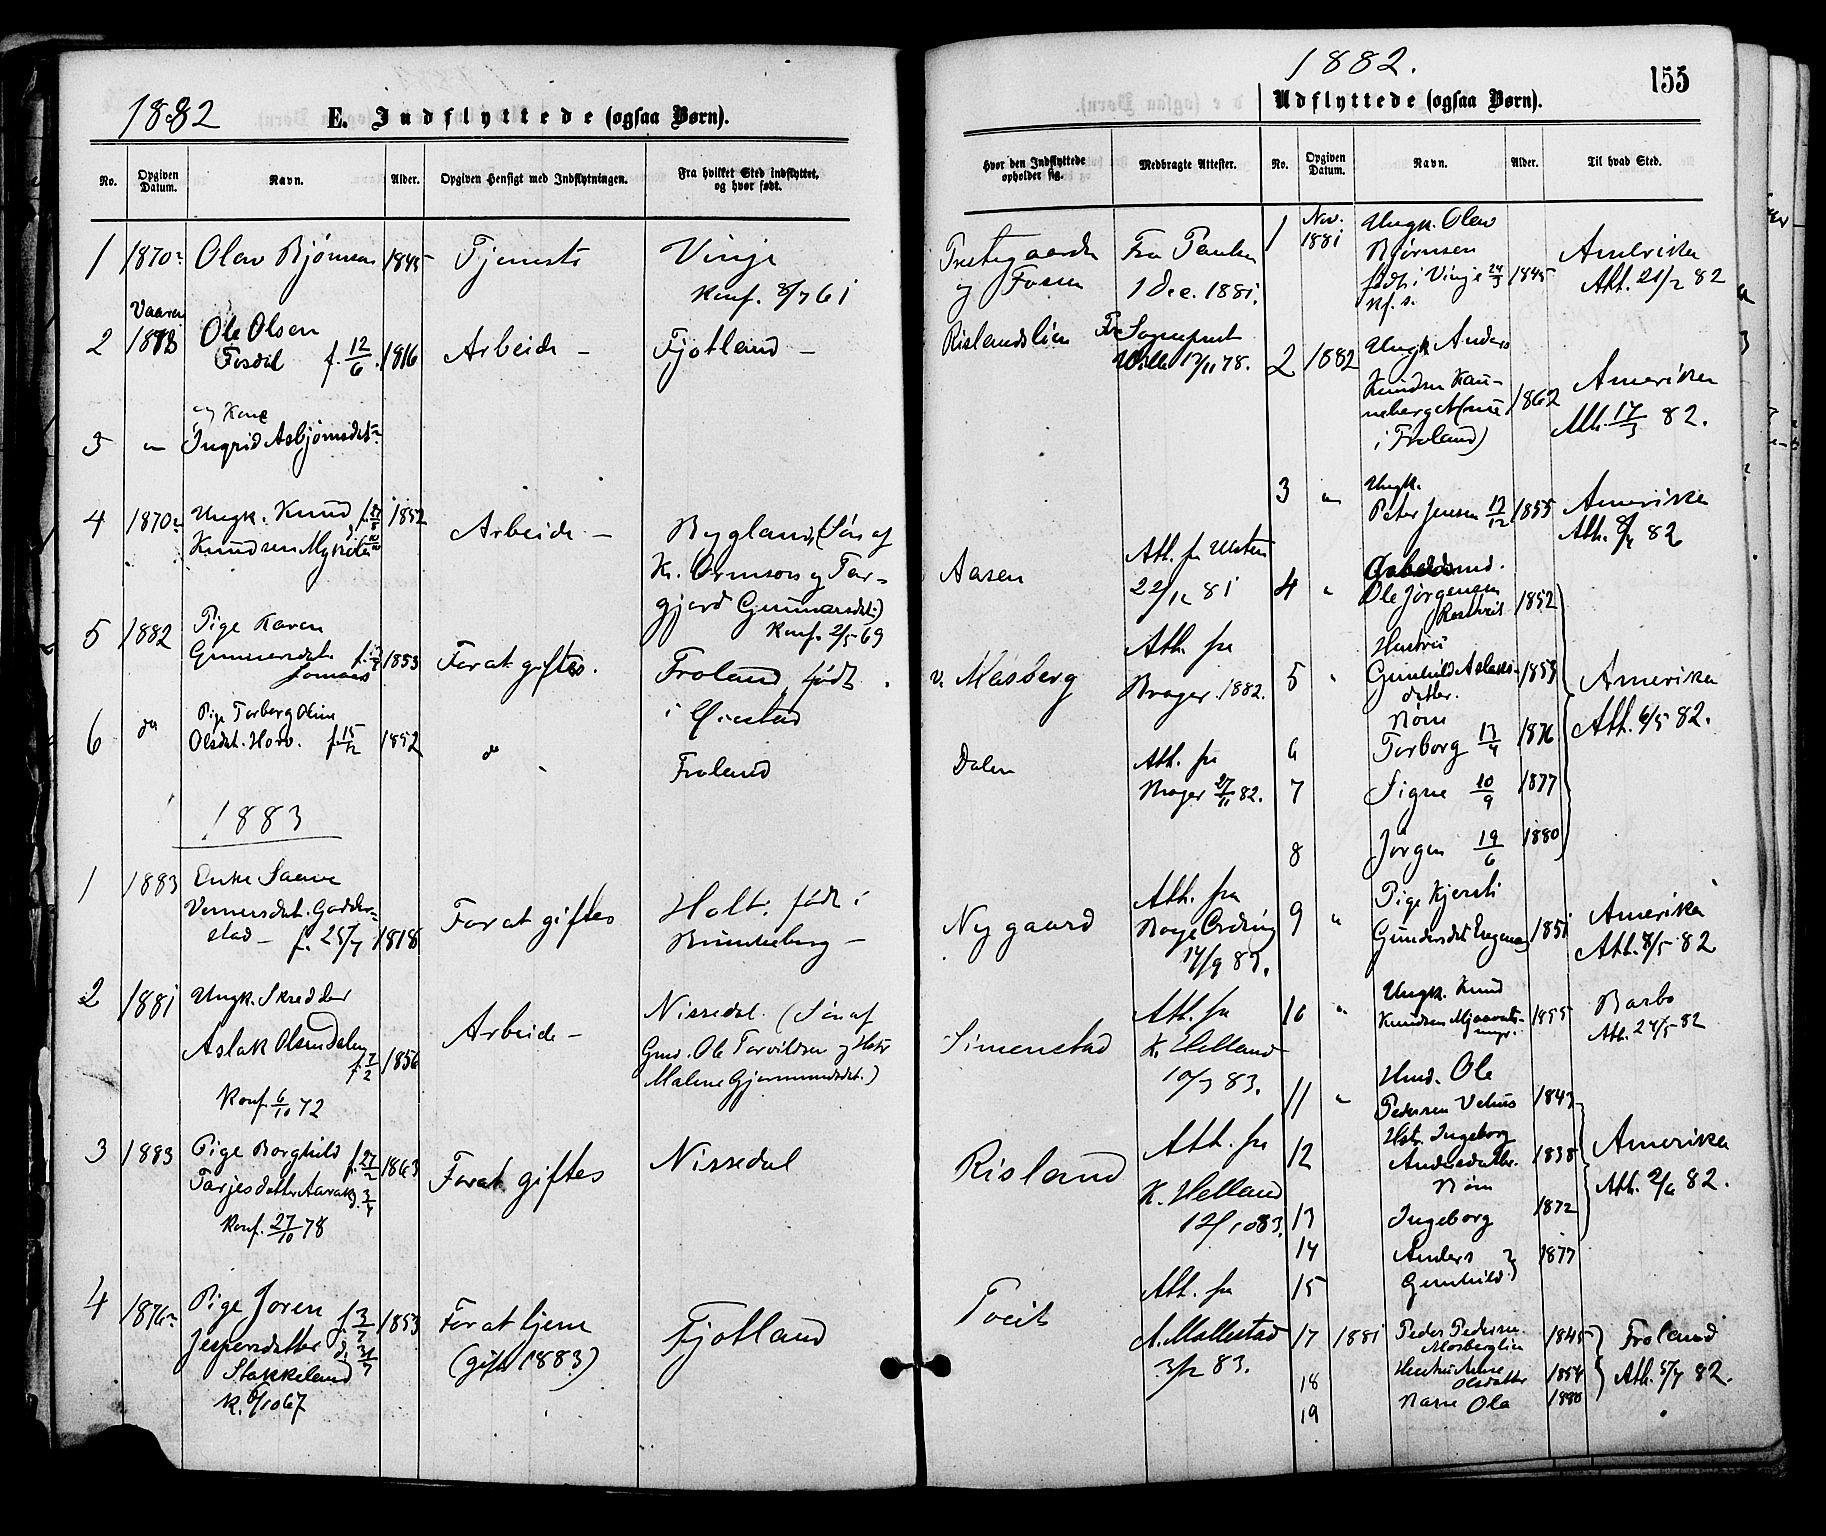 1882
E. Indflyttede (ogsaa Børn).
No.
Opgiven Datum.
Navn.
Alder.
Opgiven Hensigt med Indflytningen.
Fra hvilket Sted indflyttet, og hvor født.
1 1870 Olav Bjørnsen 1845 Tjeneste Vinje
Konf. 8/7 61
Vaaren
2 1878 Ole Olsen
Fosdal f. 12/6 1816 Arbeide – Fjotland –
og Kone
3 " Ingrid Asbjørnsdt
4 1870 Ungk. Knud 1852 Arbeide – Bygland, (Søn af
Knudsen
K. Ormsen og Tar-
gjerd Gunnarsdt.)
Konf. 2/5 69
5 1882 Pige Karen
Gunnersdt. 1853 For at giftes. Froland, født
i Øiestad
6 do Pige Torborg Oline
Olsdt. f. 15/12 1852 do Froland
1883
1 1883 Enke
Gadder-
stad – f. 25/7 1818 For at giftes Holt, født i
Brunkeberg –
2 1881 Ungk. Skredder
Aslak Olsen Dalen
f. 7/2 1856 Arbeide – Nissedal. (Søn af
Gmd. Ole Torvildsen og Hstr
Malene Gjermundsdt.)
Konf. 6/10 72
3 1883 Pige Borghild f. 27/2 1863 For at giftes Nissedal
Tarjesdatter
Konf. 27/10 78
4 1876 Pige Joren f. 3/7 1853 For at tjene Fjotland
Jespersdatter d. 31/7 (gift 1883)
Stakkeland
K. 6/10 67
1882.
155
Udflyttede (ogsaa Børn).
Hvor den Indflyttede opholder sig.
Medbragte Attester.
No.
Opgiven Datum.
Navn.
Alder.
Til hvad Sted.
og Fossen 1 Dec. 1881.
Rislandslien Fra Sogneprest
Wille 12/11 78.
Aasen Att. fra
22/12 81
v. Masberg Att. fra
1882.
Dalen Att. fra
27/11 82.
Nygaard Att. fra
14/9 83.
Simenstad Att. fra
K. Helland
10/7 83.
Risland Att. fra
K. Helland
12/10 83.
Tveit Att. fra
A. Mallestad
3/12 83.
1 Nov. 1881 Ungk. Olav
Bjørnsen
født i Vinje 24/3 1845 Amerika
Att. 21/2 82
2 1882 Ungk. Anders
Knudsen 1862 Amerika
i Froland) Att. 17/3 82.
3 " Ungk.
Peter Jensen 13/12 1855 Amerika
Att. 82
4 " Arbeidsmd.
Ole Jørgensen 1852
5 " Hustru
Gunhild Aslaks-
datter. 1853 Amerika
Att. 6/5 82.
Børn
6 Torborg 13/4 1876
7 Signe 10/9 1877
8 Jørgen 19/6 1880
9 " Pige Kjersti
Gundersdt. 1851 Amerika
Att. 8/5 82
10 " Ungk. Knud
Knudsen 1855 Barbo
Att. 24/5 82
11 " Hmd. Ole
Pedersen Vehus 1843
12 Hstr. Ingeborg
Andersdatter. 1838 Amerika
Att. 2/6 82.
Børn
13 Ingeborg 1872
14 Anders 1877
15 Gunhild
17 1881 Peder Pedersen
Mosberglien 1845 Froland
18 Hustru Anne
Olsdatter 1854 Att. 5/7 82.
19 Barn Ola 1880